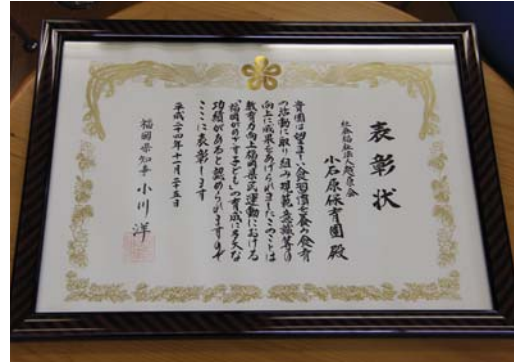 表彰状
社会福祉法人越原会
小石原保育園 殿
貴園は望ましい食習慣を養う食育
の活動に取り組み規範意識等の
向上に成果をあげられましたこのことは
教育力向上福岡県民運動における
「福岡がめざす子ども」の育成に多大な
功績があると認められますので
ここに表彰します
平成二十四年十一月二十五日
福岡県知事 小川 洋